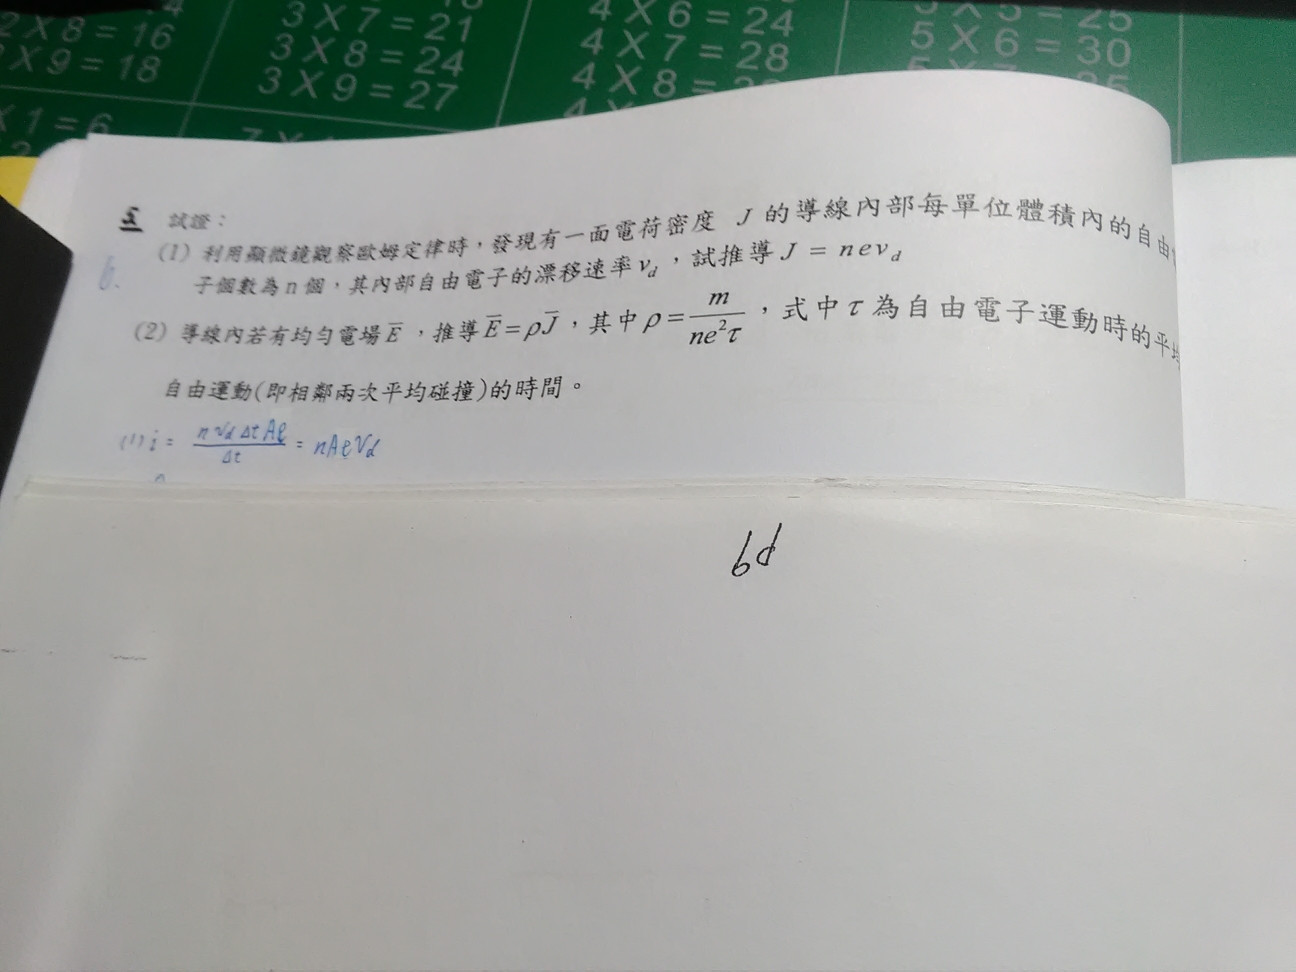 2 X 8 = 16
X 9 = 18
3 X 7 = 21
3 X 8 = 24
3 X 9 = 27
4 X 6 = 24
4 X 7 = 28
4 X 8 =
5 X 5 = 25
5 X 6 = 30
X 1 = 6
5 試證：
6.
(1) 利用顯微鏡觀察歐姆定律時，發現有一面電荷密度 J 的導線內部每單位體積內的自由
子個數為 n 個，其內部自由電子的漂移速率 v_d ，試推導 J = nev_d
(2) 導線內若有均勻電場 E̅ ，推導 E̅ = ρJ̅ ，其中 ρ = m/(ne²τ) ，式中 τ 為自由電子運動時的平均
自由運動(即相鄰兩次平均碰撞)的時間。
(1) i = (n Vd Δt Ae)/Δt = nAeVd
6d